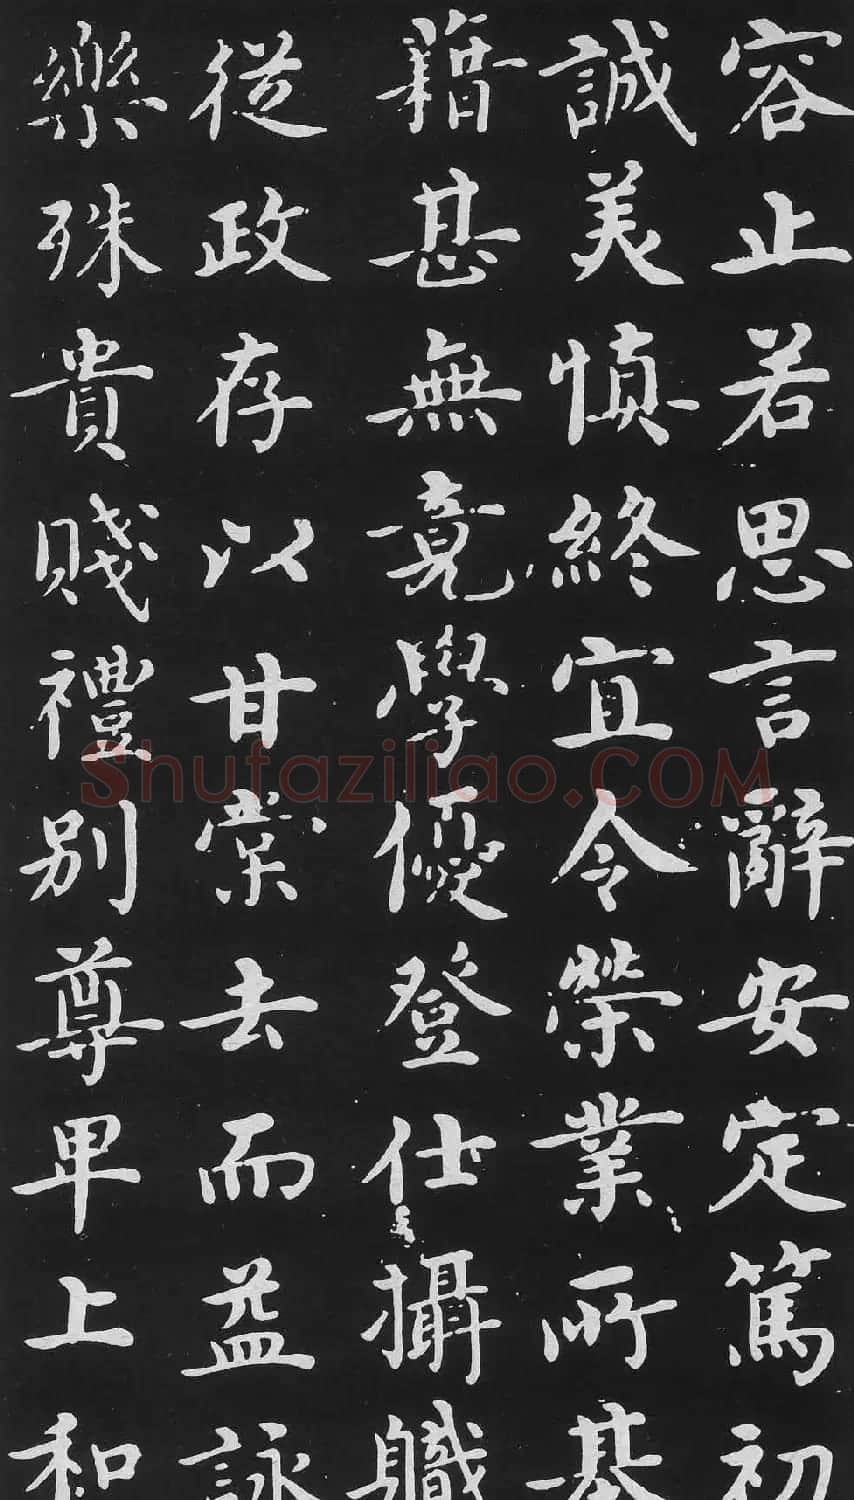 容止若思言辭安定篤初
誠美慎終宜令榮業所基
藉甚無竟學優登仕攝職
從政存以甘棠去而益詠
樂殊貴賤禮別尊卑上和
Shufaziliao.COM